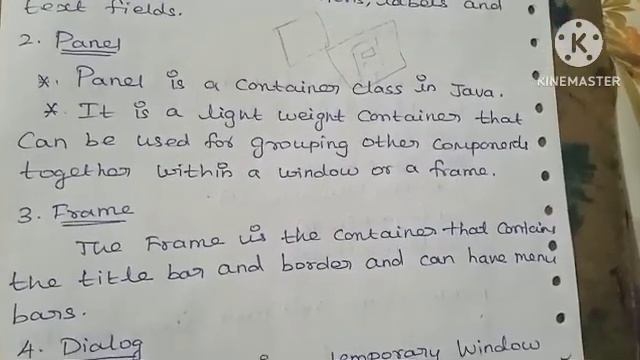 labels and
text fields.
2. Panel
*. Panel is a container class in Java.
*. It is a light weight container that
Can be used for grouping other components
together within a window or a frame.
3. Frame
The Frame is the container that contains
the title bar and border and can have menu
bars.
4. Dialog
temporary window
KINEMASTER